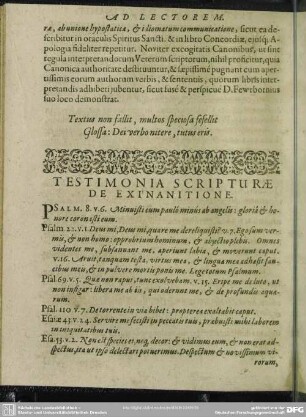 AD LECTOREM.
ræ, ab unione hypostatica, & idiomatum communicatione, sicut ea de-
scribitur in oraculis Spiritus Sancti, & in libro Concordiæ, ejusq; A-
pologia fideliter repetitur. Noviter excogitatis Canonibus, ut sint
regula interpretandorum Veterum Scriptorum, nihil proficitur, quia
Canonica authoritate destituuntur, & sæpissimè pugnant cum aper-
tissimis eorum authorum verbis, & sententiis, quorum libris inter-
pretandis adhiberi jubentur, sicut fusè & perspicuè D. Fewrbornius
suo loco demonstrat.
Textus non fallit, multos speciosa fefellit
Glossa: Dei verbo nitere, tutus eris.
TESTIMONIA SCRIPTURÆ
DE EXINANITIONE.
PSALM. 8. v. 6. Minuisti eum paulò minùs ab angelis: gloriâ & ho-
nore coronasti eum.
Psalm. 22. v. 1. Deus mi, Deus mi, quare me dereliquisti? v. 7. Ego sum ver-
mis, & non homo: opprobrium hominum, & abjectio plebis. Omnes
videntes me, subsannant me, aperiunt labia, & moverunt caput.
v. 16. Aruit, tanquam testa, virtus mea, & lingua mea adhæsit fau-
cibus meis, & in pulvere mortis ponis me. Legetatum Psalmum.
Psal. 69. v. 5. Quæ non rapui, tunc exsolvebam. v. 15. Eripe me de luto, ut
non infigar: libera me ab iis, qui oderunt me, & de profundis aqua-
rum.
Psal. 110 v. 7. De torrente in via bibet: propterea exaltabit caput.
Esaiæ 43. v. 24. Servire me fecisti in peccatis tuis, præbuisti mihi laborem
in iniquitatibus tuis.
Esa. 53. v. 2. Non est species ei, neq; decor: & vidimus eum, & non erat ad-
spectus, ita ut ipso delectari potuerimus. Despectum & novissimum vi-
rorum,